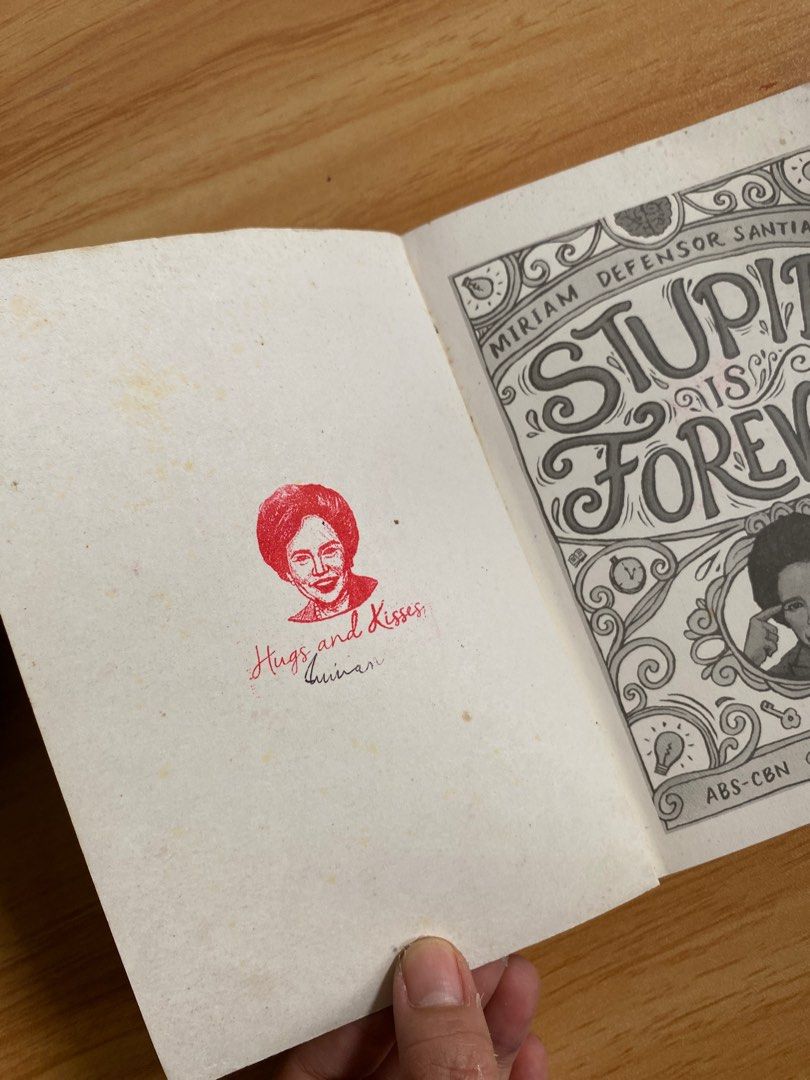 Hugs and Kisses,
Miriam
MIRIAM DEFENSOR SANTIA
STUPID
IS
FOREV
ABS-CBN